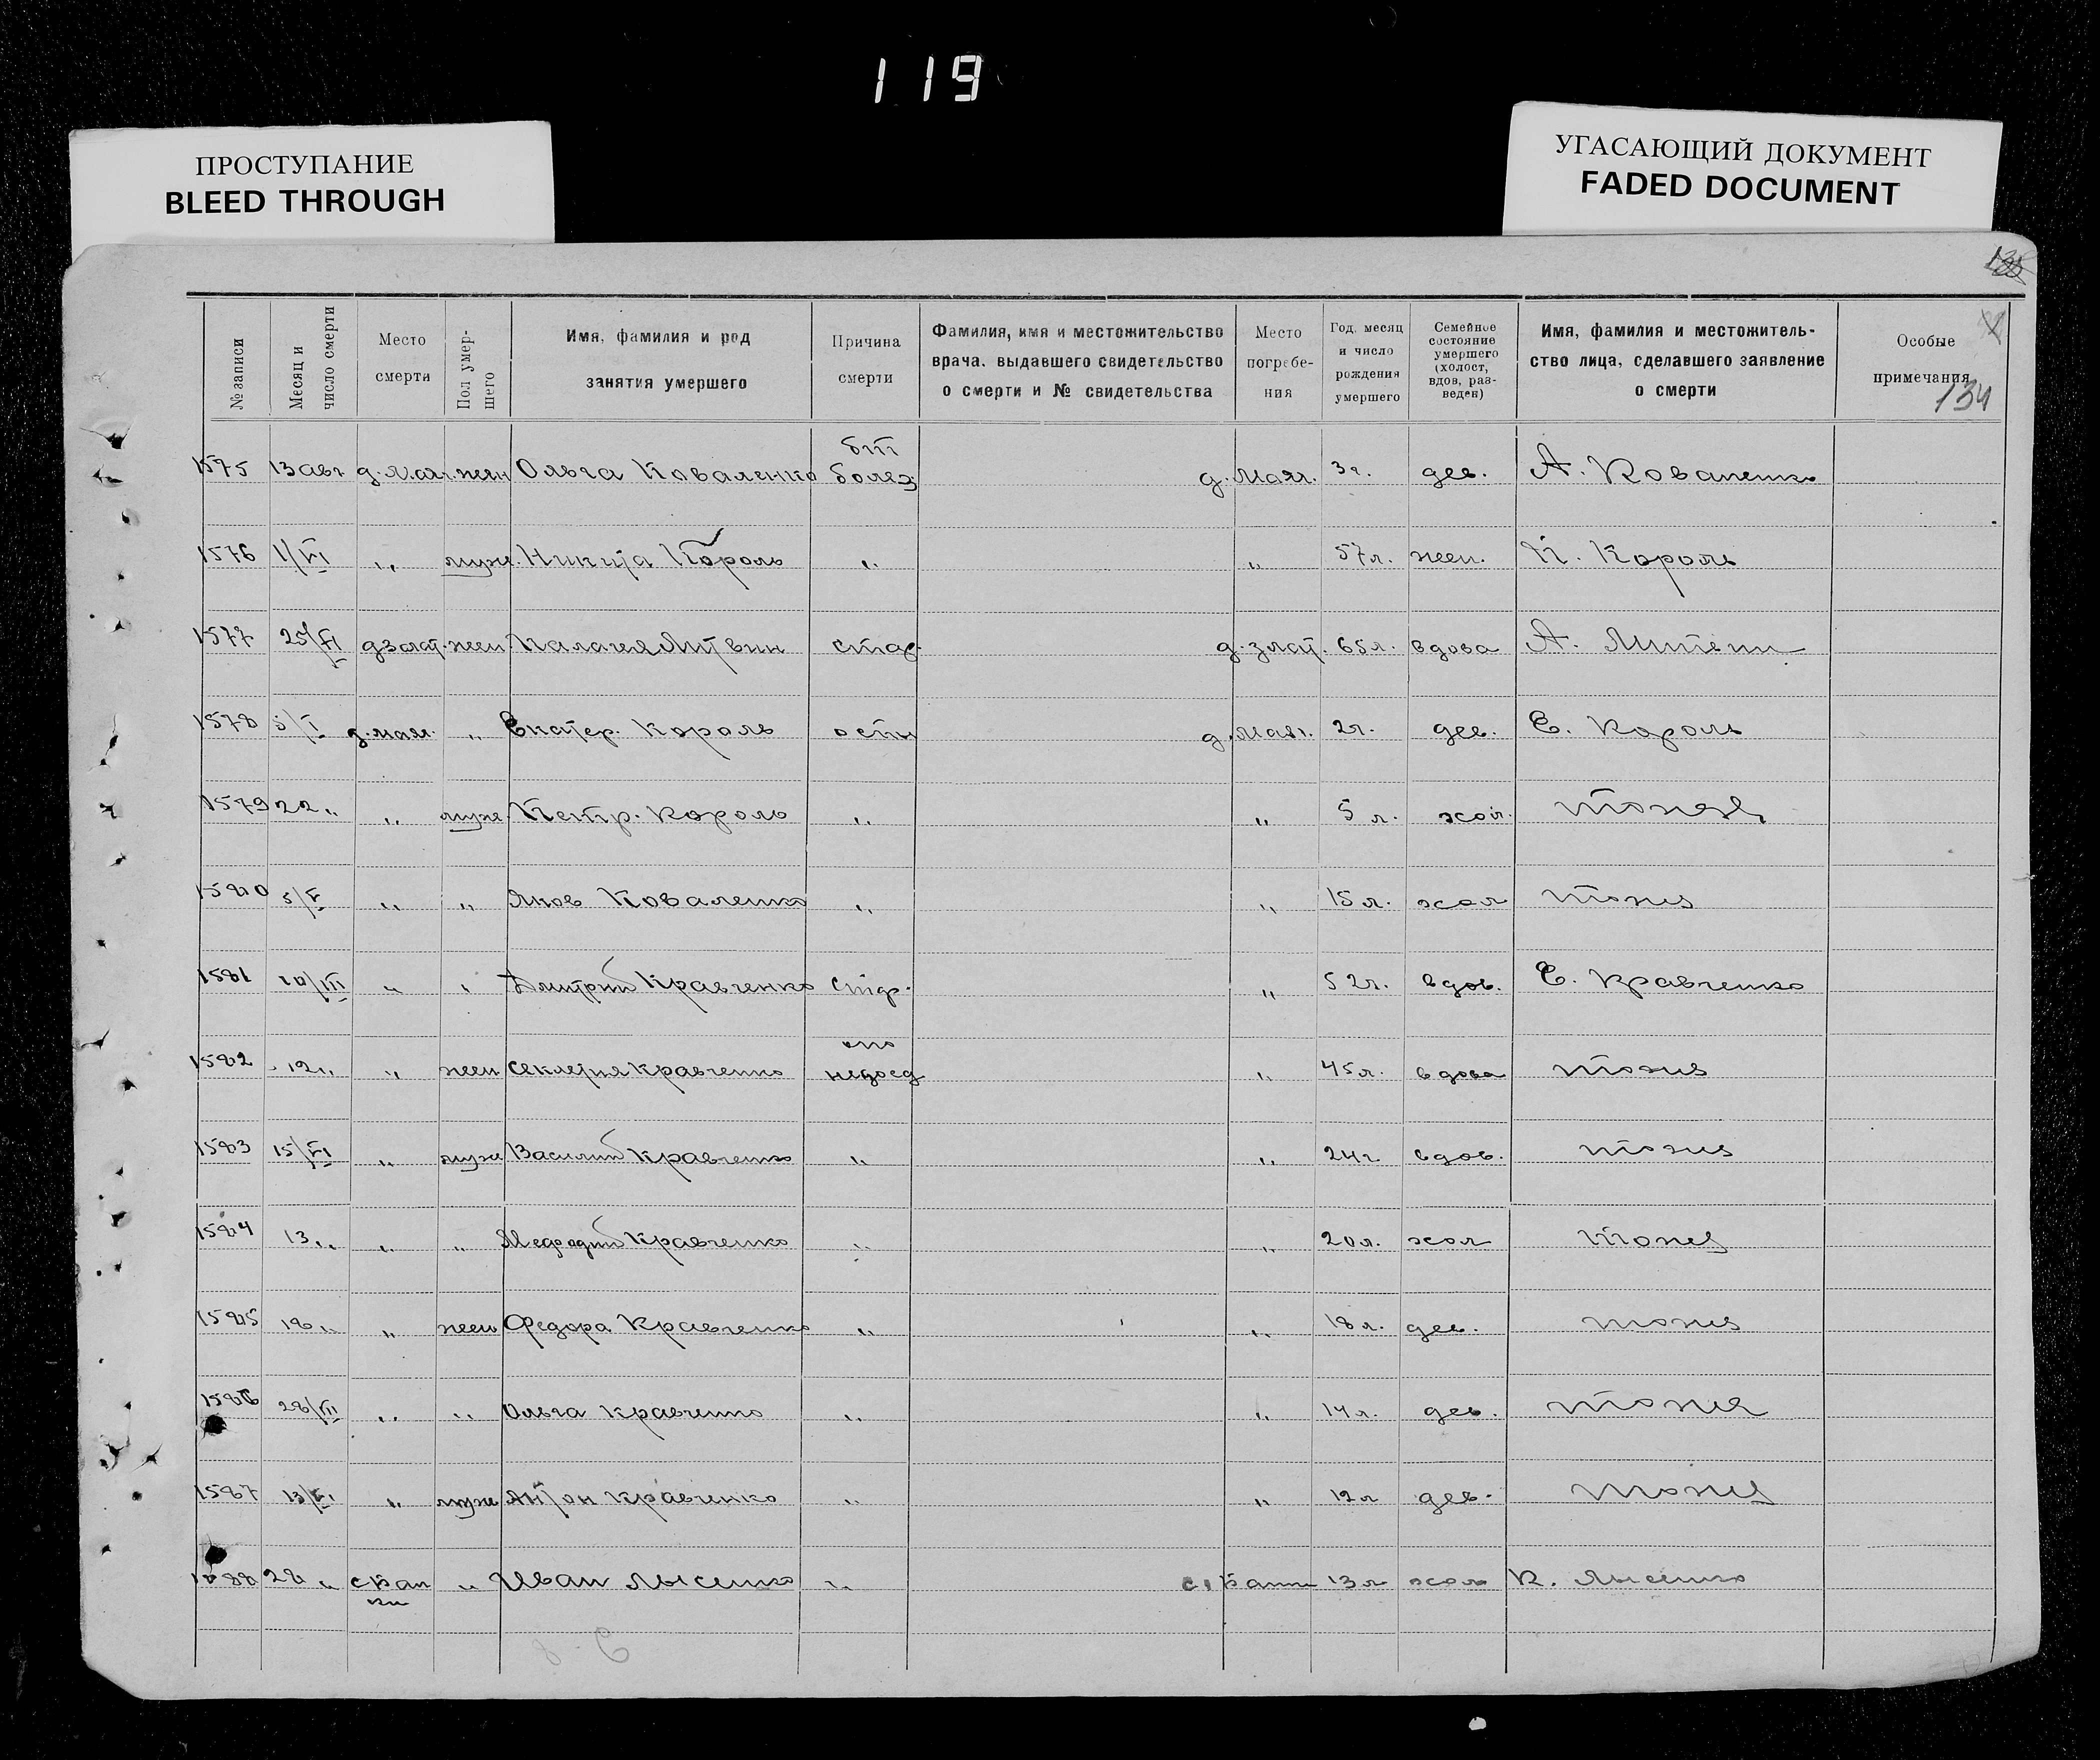 119
ПРОСТУПАНИЕ
BLEED THROUGH
УГАСАЮЩИЙ ДОКУМЕНТ
FADED DOCUMENT
№ записи
Месяц и число смерти
Место смерти
Пол умер-шего
Имя, фамилия и род занятия умершего
Причина смерти
Фамилия, имя и местожительство врача, выдавшего свидетельство о смерти и № свидетельства
Место погребе-ния
Год, месяц и число рождения умершего
Семейное состояние умершего (холост, вдов, раз-веден)
Имя, фамилия и местожитель-ство лица, сделавшего заявление о смерти
Особые примечания
134
1575 13 авг жен Ольга Коваленко болез д. Маяч. 3 г. дев. А. Коваленко
1576 1/VI " муж. Никита Король " " 57 л. жен. Король
1577 25/VI д Злат. жен. Палагея Литвин стар. д. Злат. 65 л. вдова А. Литвин
1578 5/I д. Маяч. " Екатер. Король оспы д. Маяч. 2 г. дев. Е. Король
1579 22 " " муж. Петр. Король " " 5 л. хол. тоже
1580 5/V " " Яков Коваленко " " 15 л. хол тоже
1581 " " Дмитрий Кравченко стар. " 52 г. вдов. Е. Кравченко
1582 12 " " жен Секлетия Кравченко недоед " 45 л. вдова тоже
1583 15/VI " муж Василий Кравченко " " 24 г. вдов. тоже
1584 13 " " " Мефодий Кравченко " " 20 л. хол тоже
1585 18 " " жен Федора Кравченко " " 18 л. дев. тоже
1586 28/VII " " Ольга Кравченко " " 14 л. дев. тоже
1587 13/VI " муж Антон Кравченко " " 12 л дев. тоже
1588 28 " " Иван Лысенко " 13 л хол К. Лысенко